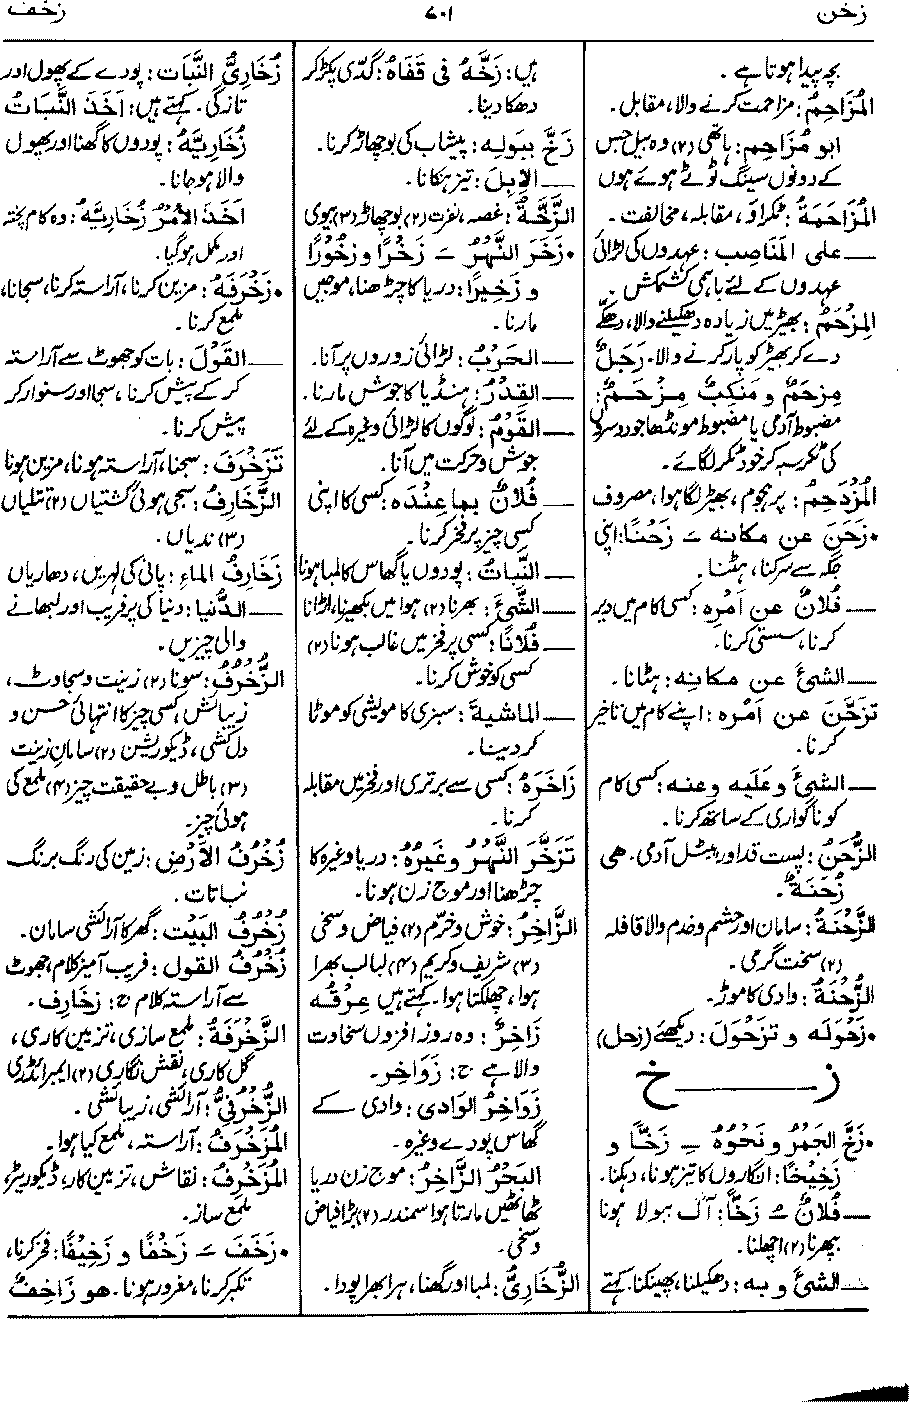 زخن
۷۰۱
زخف
بچہ پیدا ہوتا ہے۔
المُزَاحِمُ: مزاحمت کرنے والا، مقابل۔
ابو مُزَاحِم: ہاتھی (۲) وہ بیل جس
کے دونوں سینگ ٹوٹے ہوئے ہوں
المُزَاحَمَةُ: ٹکراؤ، مقابلہ، مخالفت۔
— علی المَنَاصِب: عہدوں کی لڑائی
عہدوں کے لئے باہمی کشمکش۔
المِزْحَمُ: بھیڑ میں زیادہ دھکیلنے والا، دھکّے
دے کر بھیڑ کو پار کرنے والا۔ رَجُلٌ
مِزحَمٌ و مَنكِبٌ مِزحَمٌ:
مضبوط آدمی یا مضبوط مونڈھا جو دوسروں
کی ٹکر سہہ کر خود ٹکر لگائے۔
المُزْدَحِمُ: پرہجوم، بھیڑ لگا ہوا، مصروف
• زَحَنَ عن مکانه ـَ زَحْنًا: اپنی
جگہ سے سرکنا، ہٹنا۔
— فُلانٌ عن اَمْرِه: کسی کام میں دیر
کرنا، سستی کرنا۔
— الشئَ عن مكانِه: ہٹانا۔
تزَحَّنَ عن اَمْرِه: اپنے کام میں تاخیر
کرنا۔
— الشئَ و عَلَيه و عنه: کسی کام
کو ناگواری کے ساتھ کرنا۔
الزُّحَنُ: پست قد اور پیٹل آدمی۔ ھی
زُحَنَةٌ۔
الزَّحْنَةُ: سامان اور حشم و خدم والا قافلہ
(۲) سخت گرمی۔
الزُّحْنَةُ: وادی کا موڑ۔
• زَحْوَلَه و تزَحْوَلَ: دیکھئے (زحل)
ز — خ
• زَخَّ الجَمْرُ و نَحْوُهُ ـِ زَخًّا و
زَخِيخًا: انگاروں کا تیز ہونا، دہکنا۔
— فُلانٌ ـُ زَخًّا: آگ بولا ہونا
بپھرنا (۲) اچھلنا۔
— الشئَ و به: دھکیلنا، پھینکنا۔ کہتے
ہیں: زَخَّهُ فی قَفَاهُ: گدّی پکڑ کر
دھکا دینا۔
زَخَّ بِبَولِه: پیشاب کی بوچھاڑ کرنا۔
— الإبلَ: تیز ہنکانا۔
الزَّخَّةُ: غصہ، نفرت (۲) بوچھاڑ (۳) بیوی
• زَخَرَ النَّهرُ ـَ زَخْرًا و زُخُورًا
و زَخِيرًا: دریا کا چڑھنا، موجیں
مارنا۔
— الحَرْبُ: لڑائی زوروں پر آنا۔
— القِدْرُ: ہنڈیا کا جوش مارنا۔
— القَومُ: لوگوں کا لڑائی وغیرہ کے لئے
جوش و حرکت میں آنا۔
— فُلانٌ بما عِنْدَه: کسی کا اپنی
کسی چیز پر فخر کرنا۔
— النَّباتُ: پودوں یا گھاس کا لمبا ہونا
— الشَّئَ: بھرنا (۲) ہوا میں بکھیرنا، اڑانا
— فُلانًا: کسی پر فخر میں غالب ہونا (۲)
کسی کو خوش کرنا۔
— الماشيةَ: سبزی کا مویشی کو موٹا
کر دینا۔
زَاخَرَهُ: کسی سے برتری اور فخر میں مقابلہ
کرنا۔
تَزَخَّرَ النَّهْرُ وغيرُهُ: دریا وغیرہ کا
چڑھنا اور موج زن ہونا۔
الزَّاخِرُ: خوش و خرّم (۲) فیاض و سخی
(۳) شریف و کریم (۴) لبالب بھرا
ہوا، چھلکتا ہوا۔ کہتے ہیں عِرْقُه
زَاخِرٌ: وہ روز افزوں سخاوت
والا ہے ج: زَوَاخِر۔
زَوَاخِرُ الوَادِی: وادی کے
گھاس پودے وغیرہ۔
البَحْرُ الزَّاخِرُ: موج زن دریا
ٹھاٹھیں مارتا ہوا سمندر (۲) بڑا فیاض
و سخی۔
الزُّخَارِیُّ: لمبا اور گھنا، ہرا بھرا پودا۔
زُخَارِیُّ النَّبَات: پودے کے پھول اور
تازگی۔ کہتے ہیں: اَخَذَ النَّبَاتُ
زُخَارِيَّهُ: پودوں کا گھنا اور پھول
والا ہو جانا۔
اَخَذَ الاَمْرُ زُخَارِيَّهُ: وہ کام پختہ
اور مکمل ہو گیا۔
• زَخْرَفَهُ: مزین کرنا، آراستہ کرنا، سجانا،
ملمع کرنا۔
— القَوْلَ: بات کو جھوٹ سے آراستہ
کر کے پیش کرنا، سجا اور سنوار کر
پیش کرنا۔
تَزَخْرَفَ: سجنا، آراستہ ہونا، مزین ہونا
الزَّخَارِفُ: سجی ہوئی کشتیاں (۲) تتلیاں
(۳) ندیاں۔
زَخَارِفُ الماءِ: پانی کی لہریں، دھاریاں
— الدُّنْیا: دنیا کی پر فریب اور لبھانے
والی چیزیں۔
الزُّخْرُفُ: سونا (۲) زینت و سجاوٹ،
زیبائش، کسی چیز کا انتہائی حسن و
دل کشی، ڈیکوریشن (۲) سامانِ زینت
(۳) باطل و بے حقیقت چیز (۴) ملمع کی
ہوئی چیز۔
زُخْرُفُ الأرْضِ: زمین کی رنگ برنگ
نباتات۔
زُخْرُفُ البَيْت: گھر کا آرائشی سامان۔
زُخْرُفُ القول: فریب آمیز کلام، جھوٹ
سے آراستہ کلام ج: زخارف۔
الزَّخْرَفَةُ: ملمع سازی، تزئین کاری،
گل کاری، نقش نگاری (۲) ایمبرائڈری
الزُّخْرُفِیُّ: آرائشی، زیبائشی۔
المُزَخْرَفُ: آراستہ، ملمع کیا ہوا۔
المُزَخْرِفُ: نقاش، تزئین کار، ڈیکوریٹر،
ملمع ساز۔
• زَخَفَ ـَ زَخْفًا و زَخِيفًا: فخر کرنا،
تکبر کرنا، مغرور ہونا۔ ھو زَاخِفٌ